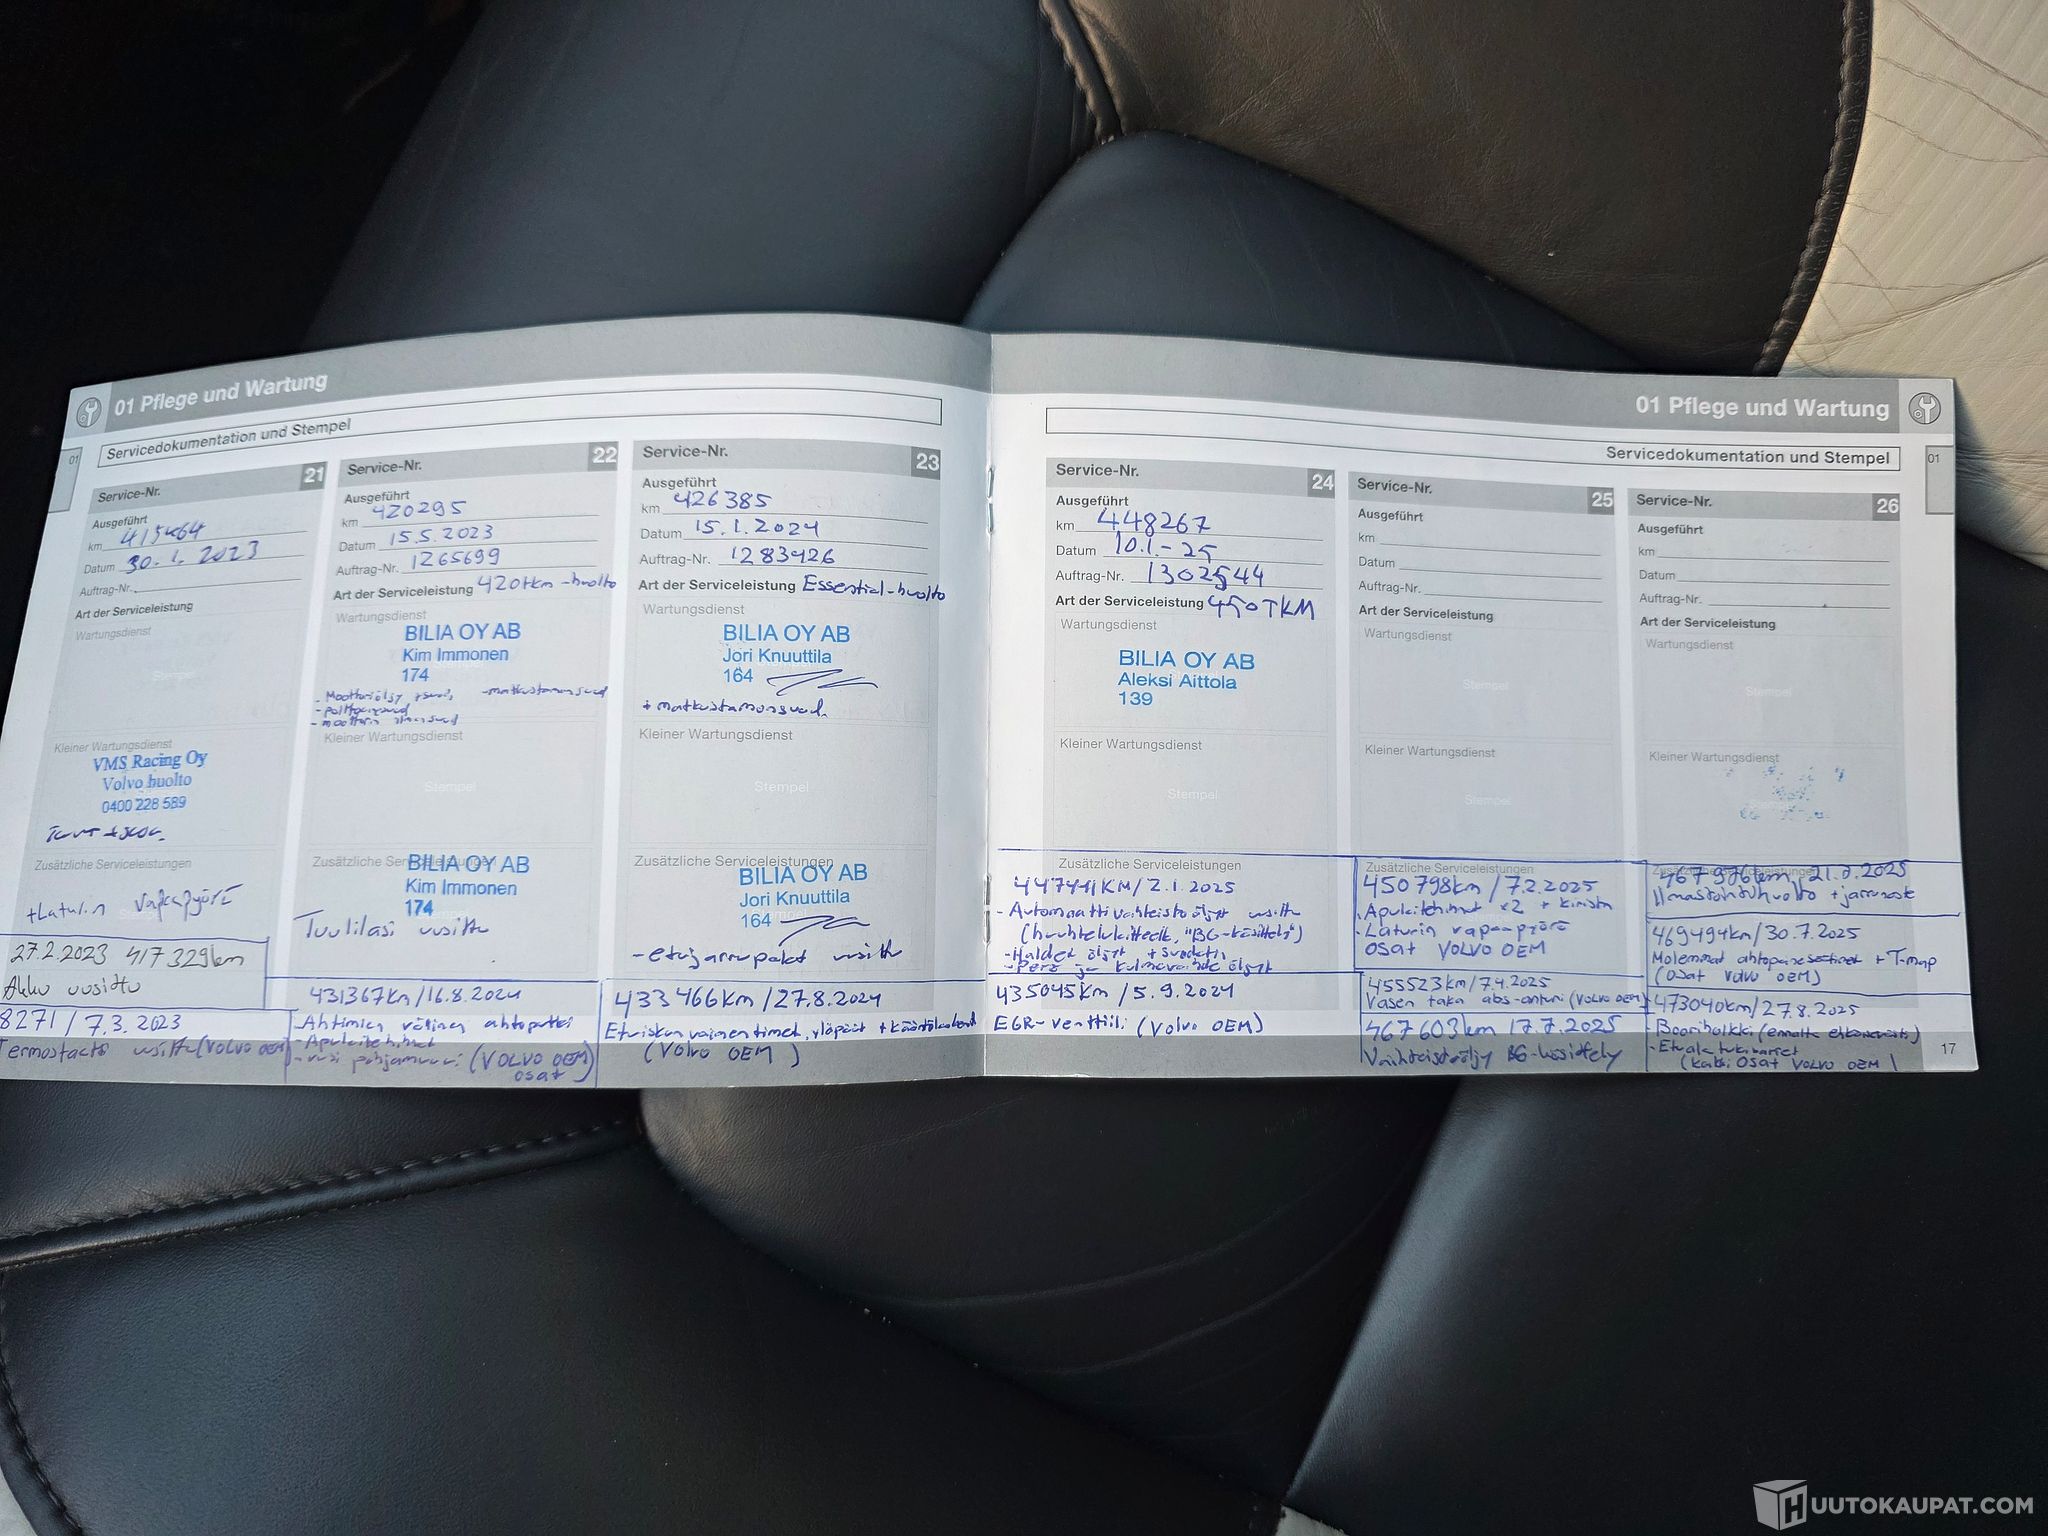 01 Pflege und Wartung
Servicedokumentation und Stempel
01
Service-Nr. 21
Ausgeführt
km
Datum 30.1.2023
Auftrag-Nr.
Art der Serviceleistung
Wartungsdienst
Stempel
Kleiner Wartungsdienst
VMS Racing Oy
Volvo huolto
0400 228 589
Zusätzliche Serviceleistungen
+Laturin vapaapyörä
27.2.2023 417329km
Akku uusittu
8271 / 7.3.2023
Termostaatti uusittu (VOLVO OEM)
Service-Nr. 22
Ausgeführt
km 420295
Datum 15.5.2023
Auftrag-Nr. 1265699
Art der Serviceleistung 420tkm-huolto
Wartungsdienst
BILIA OY AB
Kim Immonen
174
- Moottoriöljy - matkustamonsuod
Kleiner Wartungsdienst
Stempel
Zusätzliche Serviceleistungen
BILIA OY AB
Kim Immonen
174
Tuulilasi uusittu
431367km/16.8.2024
- Ahtimien välinen ahtoputki
- Apulaitehihnat
(VOLVO OEM
osat)
Service-Nr. 23
Ausgeführt
km 426385
Datum 15.1.2024
Auftrag-Nr. 1283426
Art der Serviceleistung Essential-huolto
Wartungsdienst
BILIA OY AB
Jori Knuuttila
164
+ matkustamonsuod.
Kleiner Wartungsdienst
Stempel
Zusätzliche Serviceleistungen
BILIA OY AB
Jori Knuuttila
164
- etujarrupalat uusittu
433466km/27.8.2024
Etuiskunvaimentimet, yläpäät +
(VOLVO OEM)
01 Pflege und Wartung
Servicedokumentation und Stempel
01
Service-Nr. 24
Ausgeführt
km 448267
Datum 10.1.-25
Auftrag-Nr. 1302544
Art der Serviceleistung 450TKM
Wartungsdienst
BILIA OY AB
Aleksi Aittola
139
Kleiner Wartungsdienst
Stempel
Zusätzliche Serviceleistungen
447411KM/2.1.2025
- Automaattivaihteistoöljyt uusittu
"BG-käsittely")
- Haldex öljyt + suodatin
- Perä ja kulmavaihde öljyt
435045km/5.9.2024
EGR-venttiili (Volvo OEM)
Service-Nr. 25
Ausgeführt
km
Datum
Auftrag-Nr.
Art der Serviceleistung
Wartungsdienst
Stempel
Kleiner Wartungsdienst
Stempel
Zusätzliche Serviceleistungen
450798km/7.2.2025
- Apulaitehihnat x2 + kiristin
- Laturin vapaapyörä
osat VOLVO OEM
455523km/7.4.2025
Vasen taka abs-anturi (VOLVO OEM)
467603km 17.7.2025
Vaihteistoöljy BG-käsittely
Service-Nr. 26
Ausgeführt
km
Datum
Auftrag-Nr.
Art der Serviceleistung
Wartungsdienst
Stempel
Kleiner Wartungsdienst
Ilmastointihuolto + jarruneste
469494km/30.7.2025
Molemmat + T-map
(osat VOLVO OEM)
473040km/27.8.2025
- Boosiholkki
(kaikki osat VOLVO OEM)
17
HUUTOKAUPAT.COM